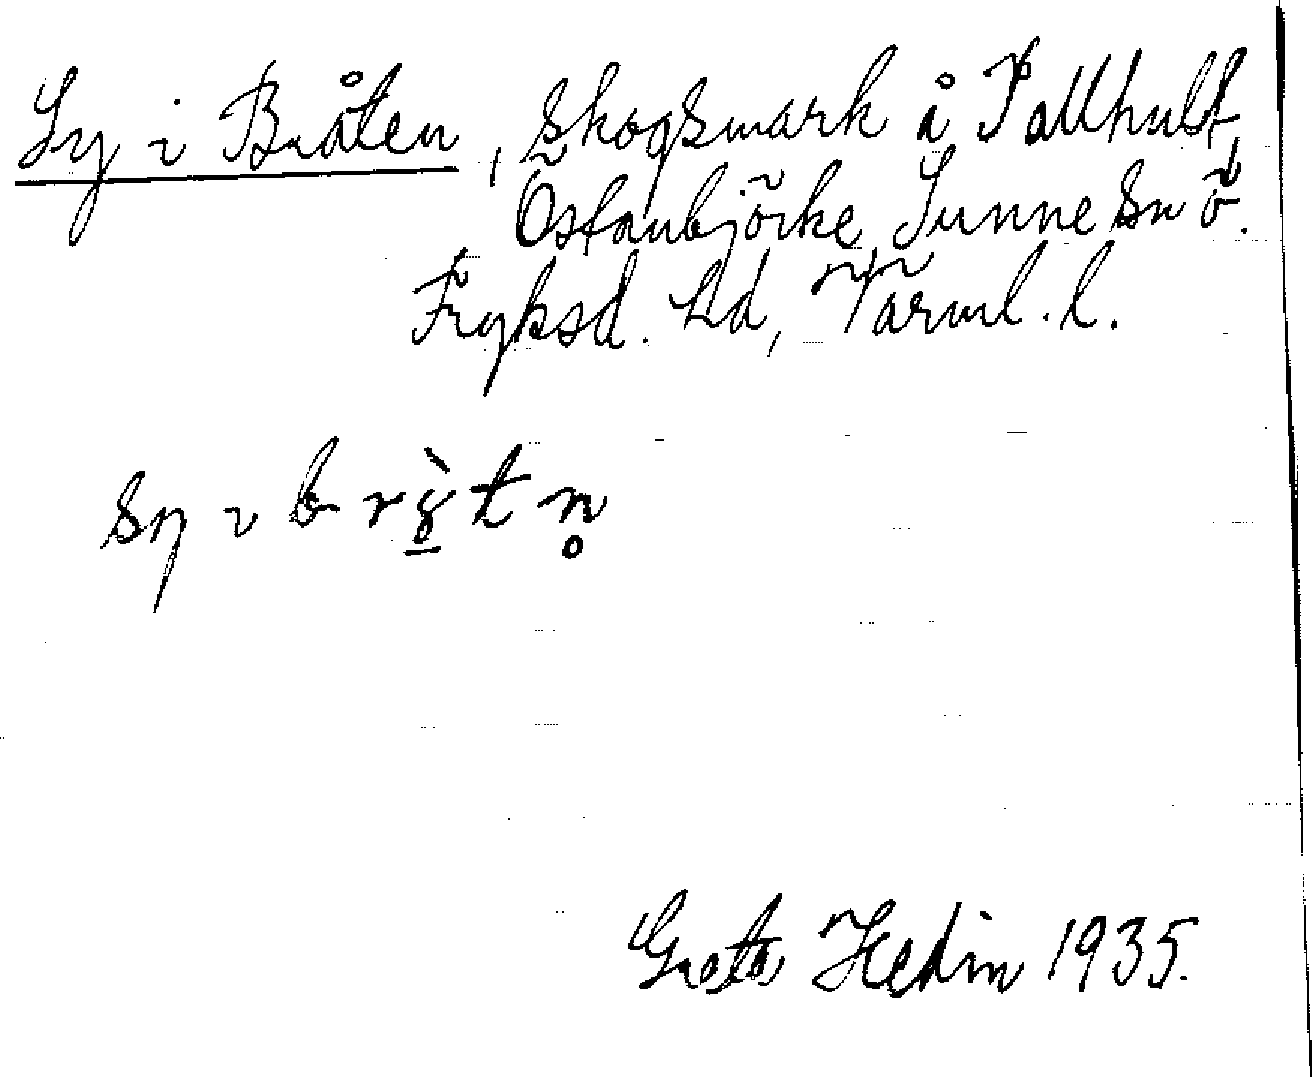 Sy i Bråten, skogsmark å Tallhult,
Östanbjörke, Sunne sn ö.
Fryksd. hd, Värml. l.
sy i b r t n̥
Greta Hedin 1935.